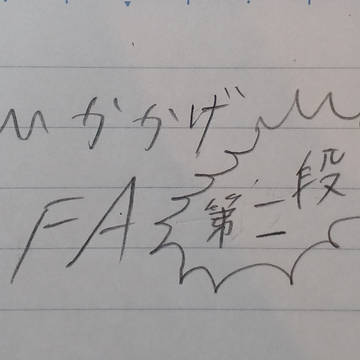 かかげ
FA 第二段